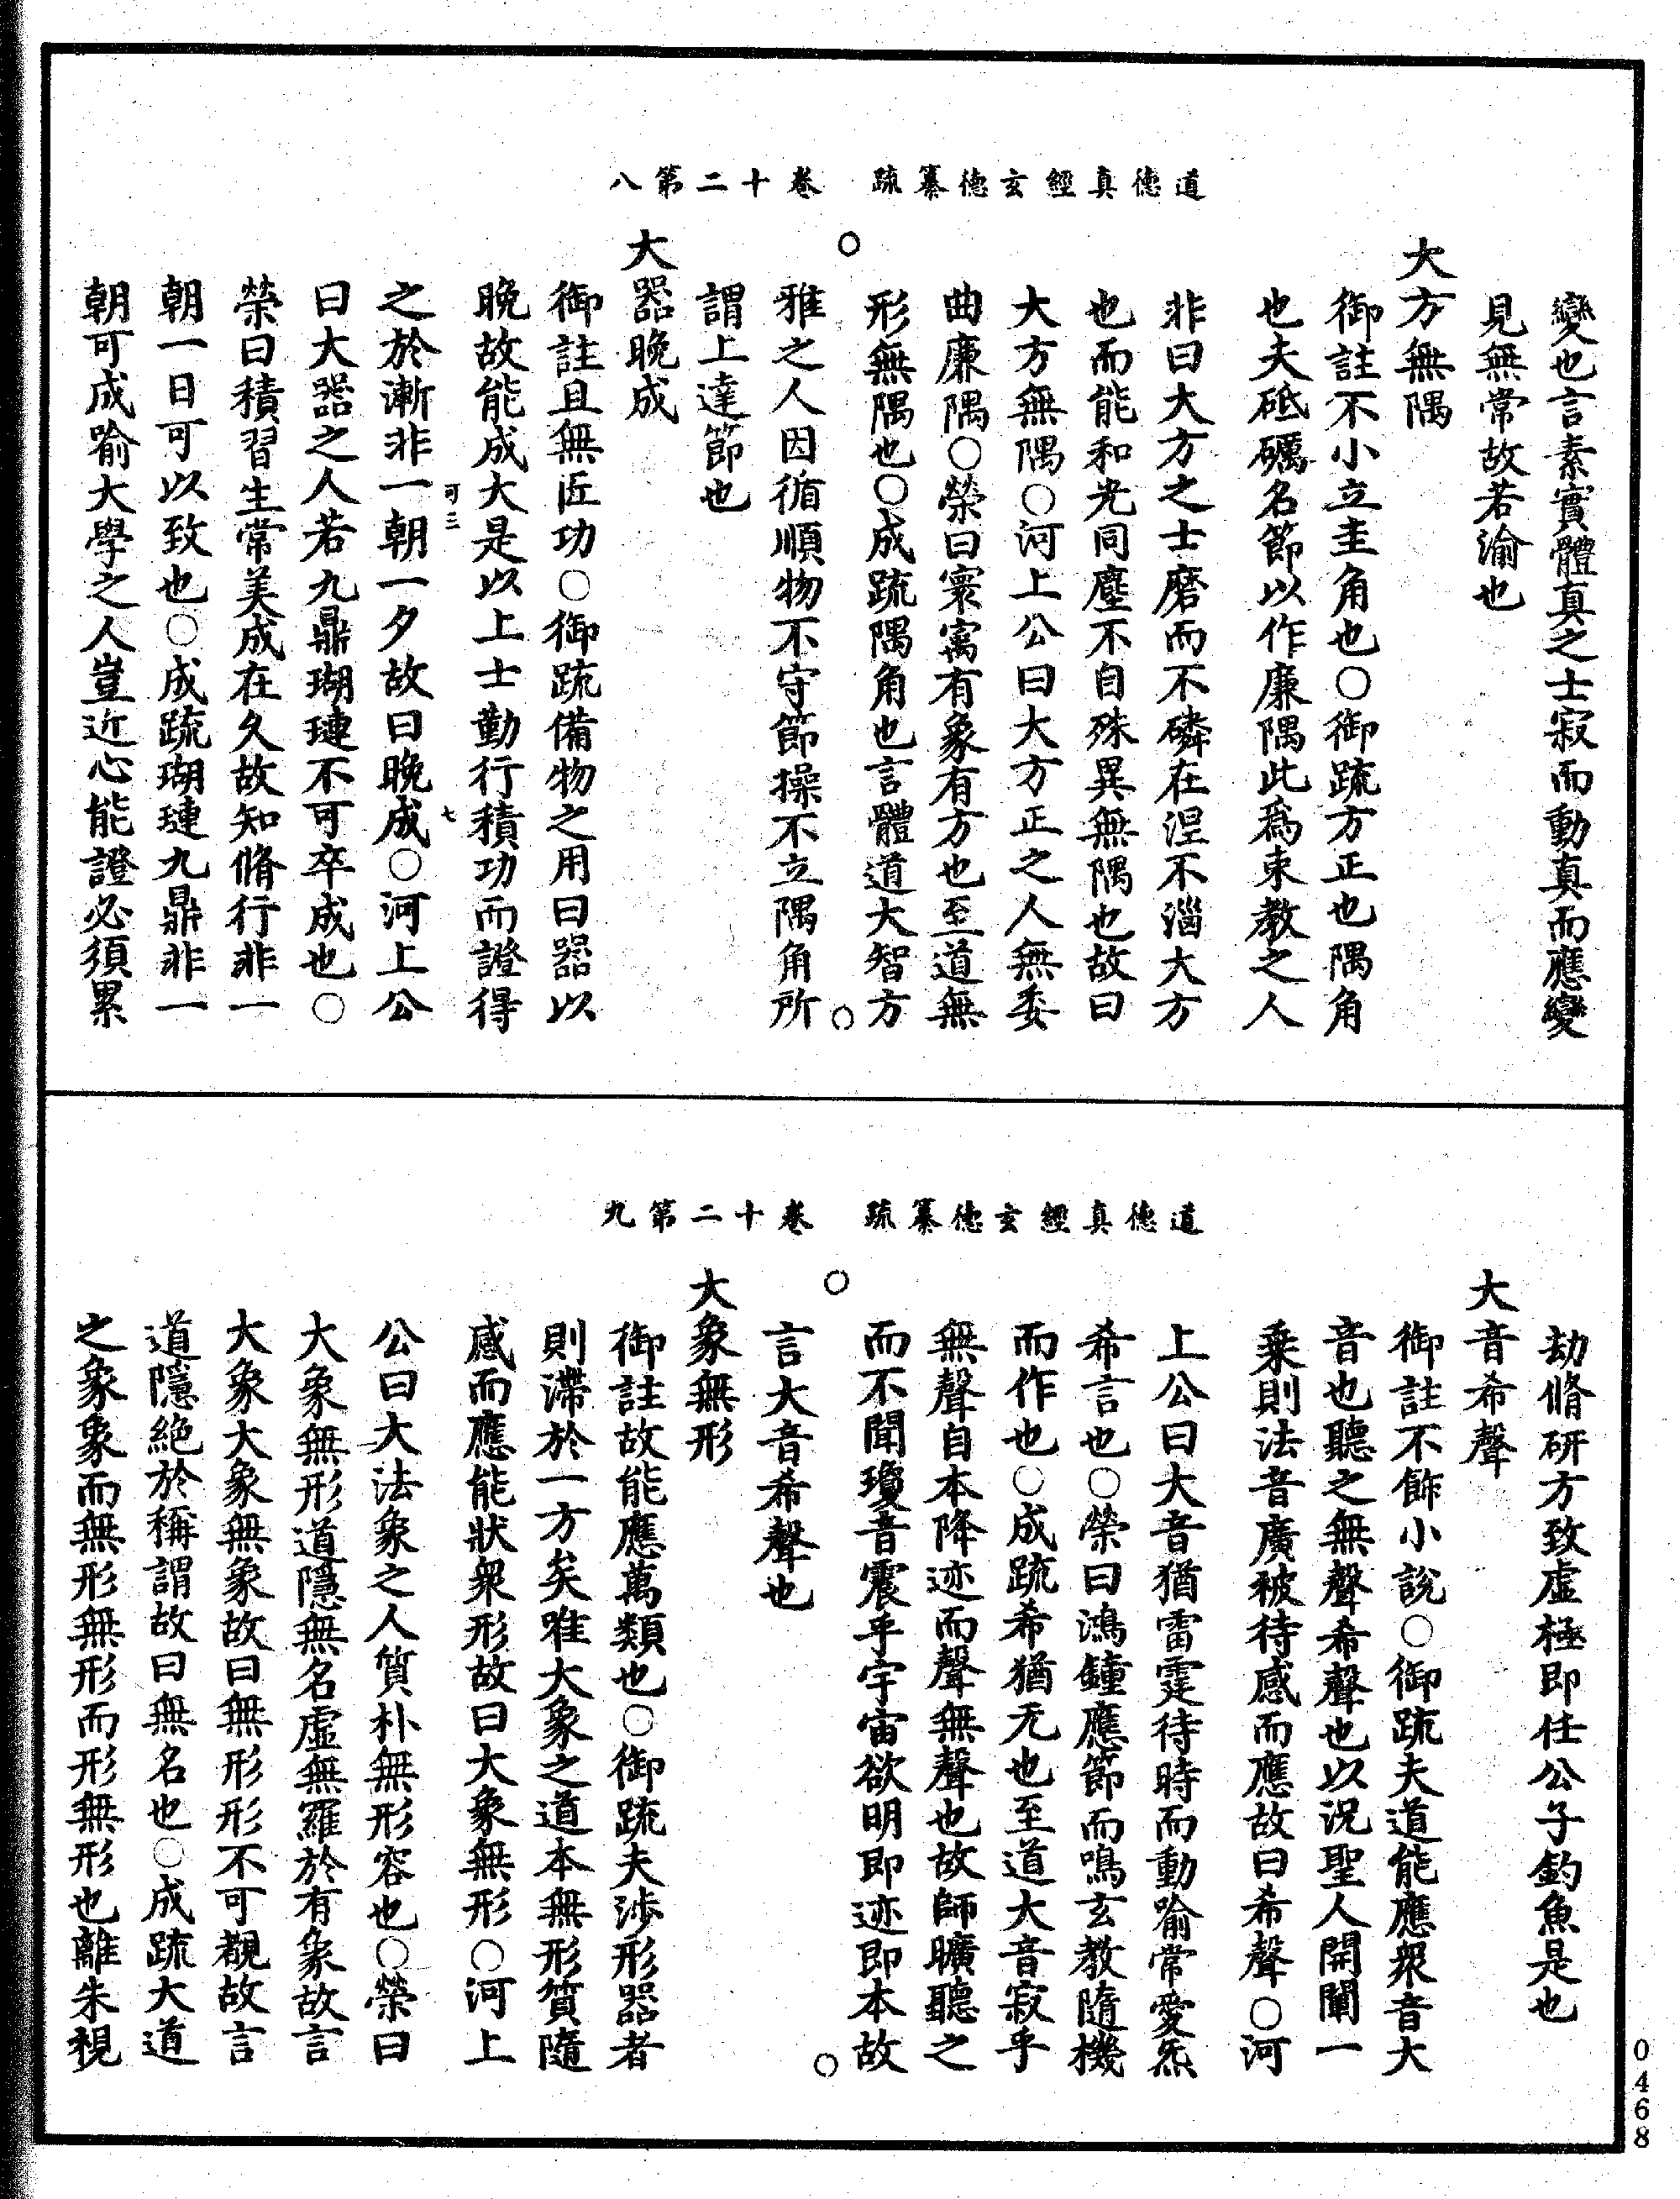 道德真經玄德纂疏　卷十二第八
變也言素實體真之士寂而動真而應變
見無常故若渝也
大方無隅
御註不小立圭角也○御疏方正也隅角
也夫砥礪名節以作廉隅此為束教之人
非曰大方之士磨而不磷在涅不淄大方
也而能和光同塵不自殊異無隅也故曰
大方無隅○河上公曰大方正之人無委
曲廉隅○榮曰寰㝢有象有方也至道無
形無隅也○成疏隅角也言體道大智方
雅之人因循順物不守節操不立隅角所
謂上達節也
大器晚成
御註且無近功○御疏備物之用曰器以
晚故能成大是以上士勤行積功而證得
可三　七
之於漸非一朝一夕故曰晚成○河上公
曰大器之人若九鼎瑚璉不可卒成也○
榮曰積習生常美成在久故知脩行非一
朝一日可以致也○成疏瑚璉九鼎非一
朝可成喻大學之人豈近心能證必須累
道德真經玄德纂疏　卷十二第九
劫脩研方致虛極即任公子釣魚是也
大音希聲
御註不飾小說○御疏夫道能應衆音大
音也聽之無聲希聲也以況聖人開闡一
乘則法音廣被待感而應故曰希聲○河
上公曰大音猶雷霆待時而動喻常愛炁
希言也○榮曰鴻鐘應節而鳴玄教隨機
而作也○成疏希猶无也至道大音寂乎
無聲自本降迹而聲無聲也故師曠聽之
而不聞瓊音震乎宇宙欲明即迹即本故
言大音希聲也
大象無形
御註故能應萬類也○御疏夫涉形器者
則滯於一方矣唯大象之道本無形質隨
感而應能狀衆形故曰大象無形○河上
公曰大法象之人質朴無形容也○榮曰
大象無形道隱無名虛無羅於有象故言
大象大象無象故曰無形形不可覩故言
道隱絕於稱謂故曰無名也○成疏大道
之象象而無形無形而形無形也離朱視
0468